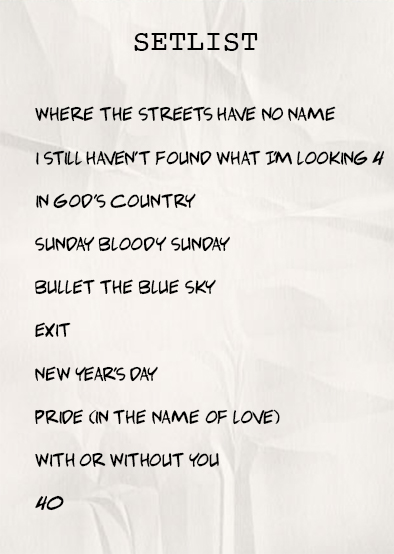 SETLIST
WHERE THE STREETS HAVE NO NAME
I STILL HAVEN'T FOUND WHAT I'M LOOKING 4
IN GOD'S COUNTRY
SUNDAY BLOODY SUNDAY
BULLET THE BLUE SKY
EXIT
NEW YEAR'S DAY
PRIDE (IN THE NAME OF LOVE)
WITH OR WITHOUT YOU
40